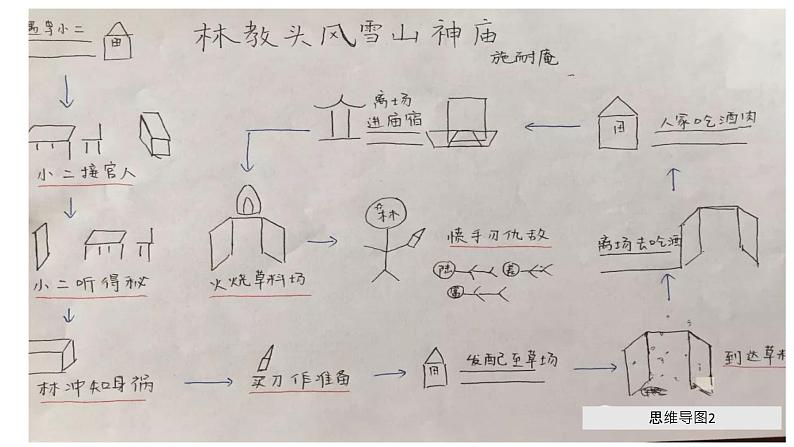 林教头风雪山神庙
施耐庵
遇李小二
小二接官人
小二听得秘
林冲知身祸
买刀作准备
发配至草场
到达草料
离场去吃酒
人家吃酒肉
离场
进庙宿
火烧草料场
林
愤手刃仇敌
陆
富
思维导图2